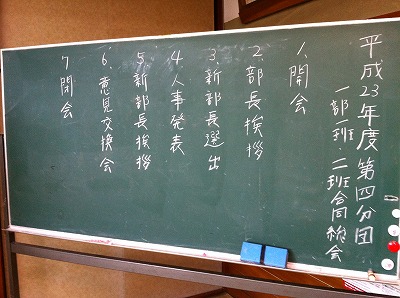 平成23年度第四分団
一部一班・二班合同総会
1. 開会
2. 部長挨拶
3. 新部長選出
4. 人事発表
5. 新部長挨拶
6. 意見交換会
7. 閉会